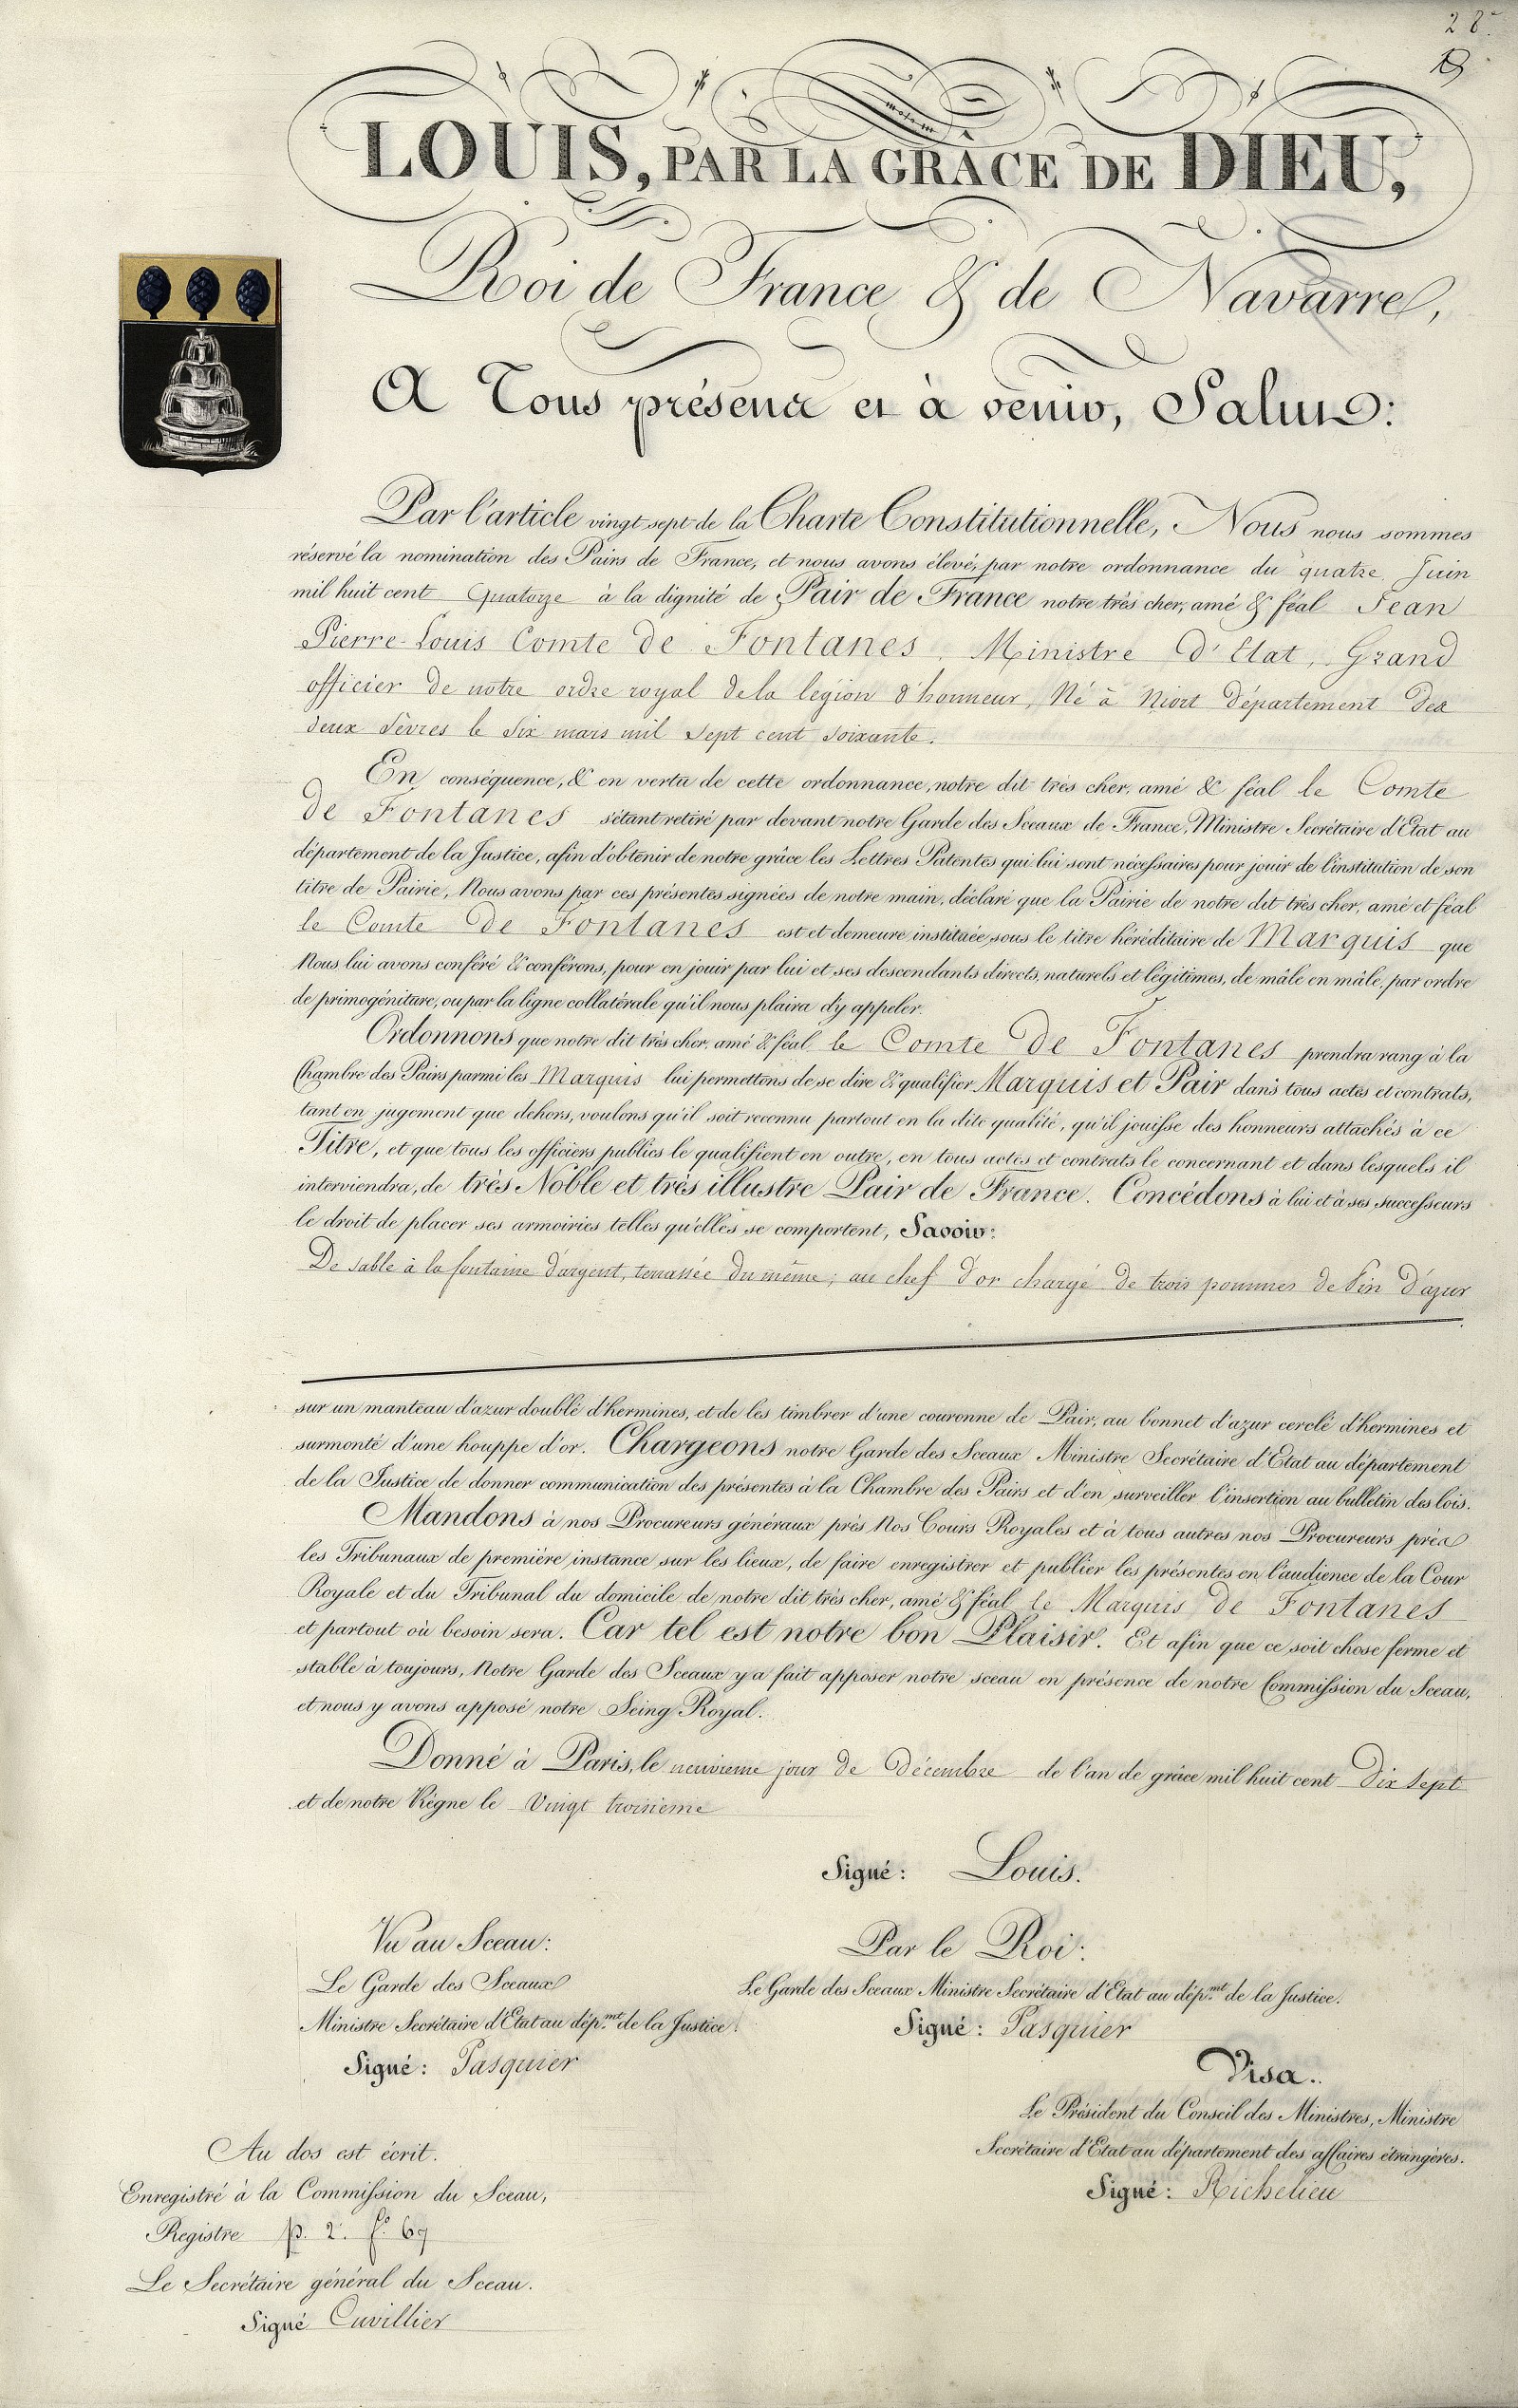 28
19
LOUIS, PAR LA GRÂCE DE DIEU,
Roi de France & de Navarre,
A Tous présens et à venir, Salut:
Par l'article vingt-sept de la Charte Constitutionnelle, Nous nous sommes
réservé la nomination des Pairs de France, et nous avons élevé, par notre ordonnance du quatre Juin
mil huit cent Quatorze à la dignité de Pair de France notre très cher, amé & féal Jean
Pierre-Louis Comte de Fontanes, Ministre d'Etat, Grand
officier de notre ordre royal de la légion d'honneur, Né à Niort département des
deux Sèvres le Six mars mil Sept cent soixante.
En conséquence, & en vertu de cette ordonnance, notre dit très cher, amé & féal le Comte
de Fontanes s'étant retiré par devant notre Garde des Sceaux de France, Ministre Secrétaire d'Etat au
département de la Justice, afin d'obtenir de notre grâce les Lettres Patentes qui lui sont nécessaires pour jouir de l'institution de son
titre de Pairie, Nous avons par ces présentes signées de notre main, déclaré que la Pairie de notre dit très cher, amé et féal
le Comte de Fontanes est et demeure instituée sous le titre héréditaire de Marquis que
Nous lui avons conféré & conférons, pour en jouir par lui et ses descendants directs, naturels et légitimes, de mâle en mâle, par ordre
de primogéniture, ou par la ligne collatérale qu'il nous plaira d'y appeler.
Ordonnons que notre dit très cher, amé & féal le Comte de Fontanes prendra rang à la
Chambre des Pairs parmi les Marquis lui permettons de se dire & qualifier Marquis et Pair dans tous actes et contrats,
tant en jugement que dehors, voulons qu'il soit reconnu partout en la dite qualité, qu'il jouisse des honneurs attachés à ce
Titre, et que tous les officiers publics le qualifient en outre, en tous actes et contrats le concernant et dans lesquels il
interviendra, de très Noble et très illustre Pair de France. Concédons à lui et à ses successeurs
le droit de placer ses armoiries telles qu'elles se comportent, Savoir:
De sable à la fontaine d'argent, terrassée du même; au chef d'or chargé de trois pommes de Pin d'azur
sur un manteau d'azur doublé d'hermines, et de les timbrer d'une couronne de Pair, au bonnet d'azur cerclé d'hermines et
surmonté d'une houppe d'or. Chargeons notre Garde des Sceaux Ministre Secrétaire d'Etat au département
de la Justice de donner communication des présentes à la Chambre des Pairs et d'en surveiller l'insertion au bulletin des lois.
Mandons à nos Procureurs généraux près Nos Cours Royales et à tous autres nos Procureurs près
les Tribunaux de première instance sur les lieux, de faire enregistrer et publier les présentes en l'audience de la Cour
Royale et du Tribunal du domicile de notre dit très cher, amé & féal le Marquis de Fontanes
et partout où besoin sera. Car tel est notre bon Plaisir. Et afin que ce soit chose ferme et
stable à toujours, Notre Garde des Sceaux y a fait apposer notre sceau en présence de notre Commission du Sceau,
et nous y avons apposé notre Seing Royal.
Donné à Paris, le neuvieme jour de décembre de l'an de grâce mil huit cent Dix Sept
et de notre Règne le Vingt troisieme
Signé: Louis.
Vu au Sceau:
Le Garde des Sceaux
Ministre Secrétaire d'Etat au dép.mt de la Justice.
Signé: Pasquier
Par le Roi:
Le Garde des Sceaux Ministre Secrétaire d'Etat au dép.mt de la Justice.
Signé: Pasquier
Visa.
Le Président du Conseil des Ministres, Ministre
Secrétaire d'Etat au département des affaires étrangères.
Signé: Richelieu
Au dos est écrit.
Enregistré à la Commission du Sceau,
Registre p. 2. f.o 69
Le Secrétaire général du Sceau.
Signé Cuvillier